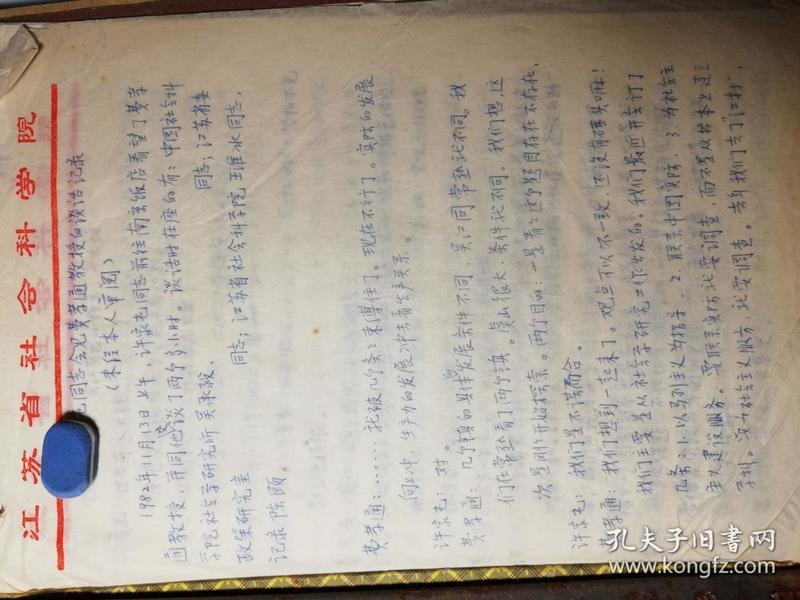 江苏省社会科学院
同志会见费孝通教授的谈话记录
（未经本人审阅）
1982年11月13日上午，许家屯同志前往南京饭店看望了费孝
通教授，并同他谈了两个多小时。谈话时在座的有：中国社会科
学院社会学研究所吴承毅、 同志；江苏省委
政策研究室 同志；江苏省社会科学院王淮冰同志，
记录陈颐。
费孝通：……就被几个条条束缚住了。现在不行了。实际的发展
向上冲，生产力的发展冲击着生产关系。
许家屯：对。
费孝通：几个镇的具体发展条件不同，吴江同常熟就不同。我
们在常熟看了两个镇。虞山很大，条件就不同。我们想，这
次是刚刚开始探索。两个目的：一是看看这个题目存在不存在，
许家屯：我们是不谋而合。
费孝通：我们想到一起来了。观点可以不一致，还没有碰头嘛！
我们主要是从社会学研究工作出发的。我们最近开会订了
几条：1.以马列主义为指导，2.联系中国实际，3.为社会主
义建设服务。要联系实际就要调查，而不是从书本上建立
学科。要为社会主义服务，就要调查。去年我们去了"江村"，
孔夫子旧书网
www.kongfz.com